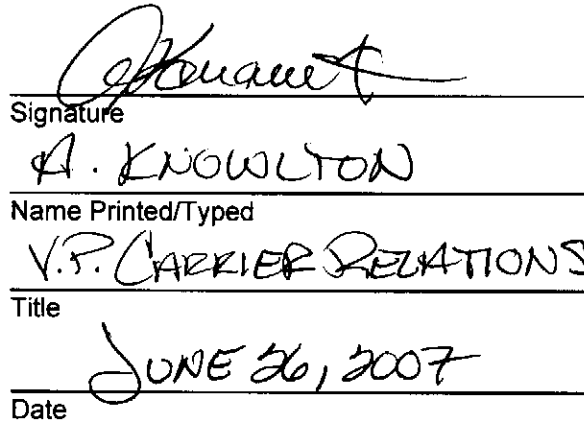 Signature
A. KNOWLTON
Name Printed/Typed
V.P. CARRIER RELATIONS
Title
JUNE 26, 2007
Date